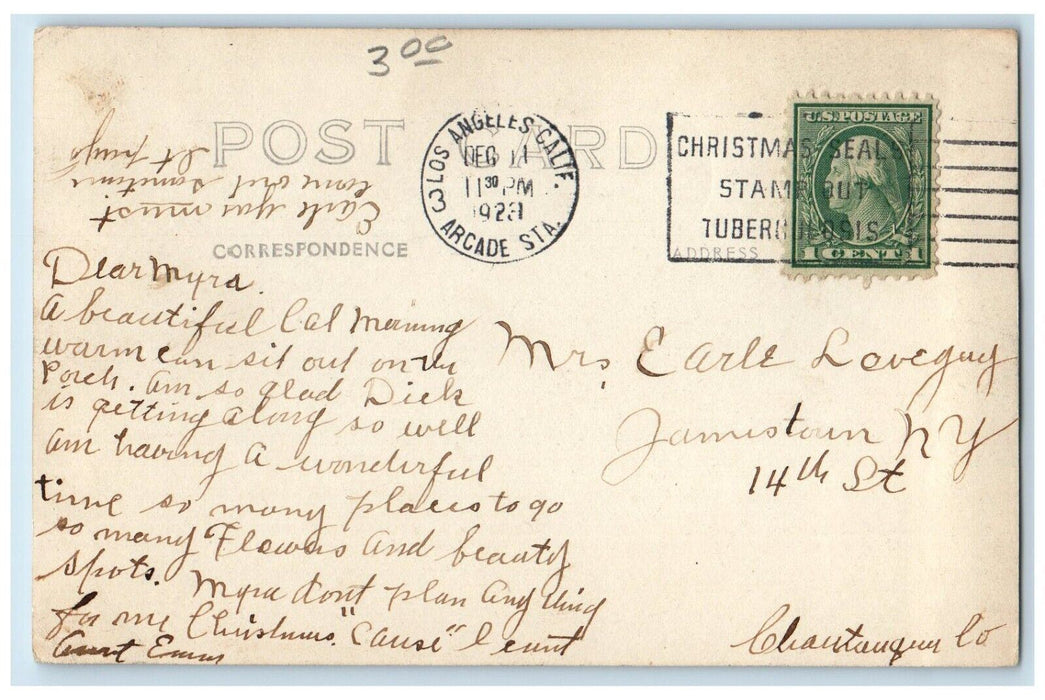 3 00
POST CARD
LOS ANGELES, CALIF.
DEC 11
11 30 PM
1923
3 ARCADE STA.
CHRISTMAS SEALS
STAMP OUT
TUBERCULOSIS
U.S. POSTAGE
1 CENT 1
Earle you must
come out sometime
it pays
CORRESPONDENCE
ADDRESS
Dear Myra.
A beautiful Cal Morning
warm can sit out on the
Porch. am so glad Dick
is getting along so well
am having a wonderful
time so many places to go
so many Flowers and beauty
spots. Myra dont plan any thing
for me Christmas. "cause" I cant
Aunt Emma
Mrs Earle Loveguy
Jamestown NY
14th St
Chautauqua Co